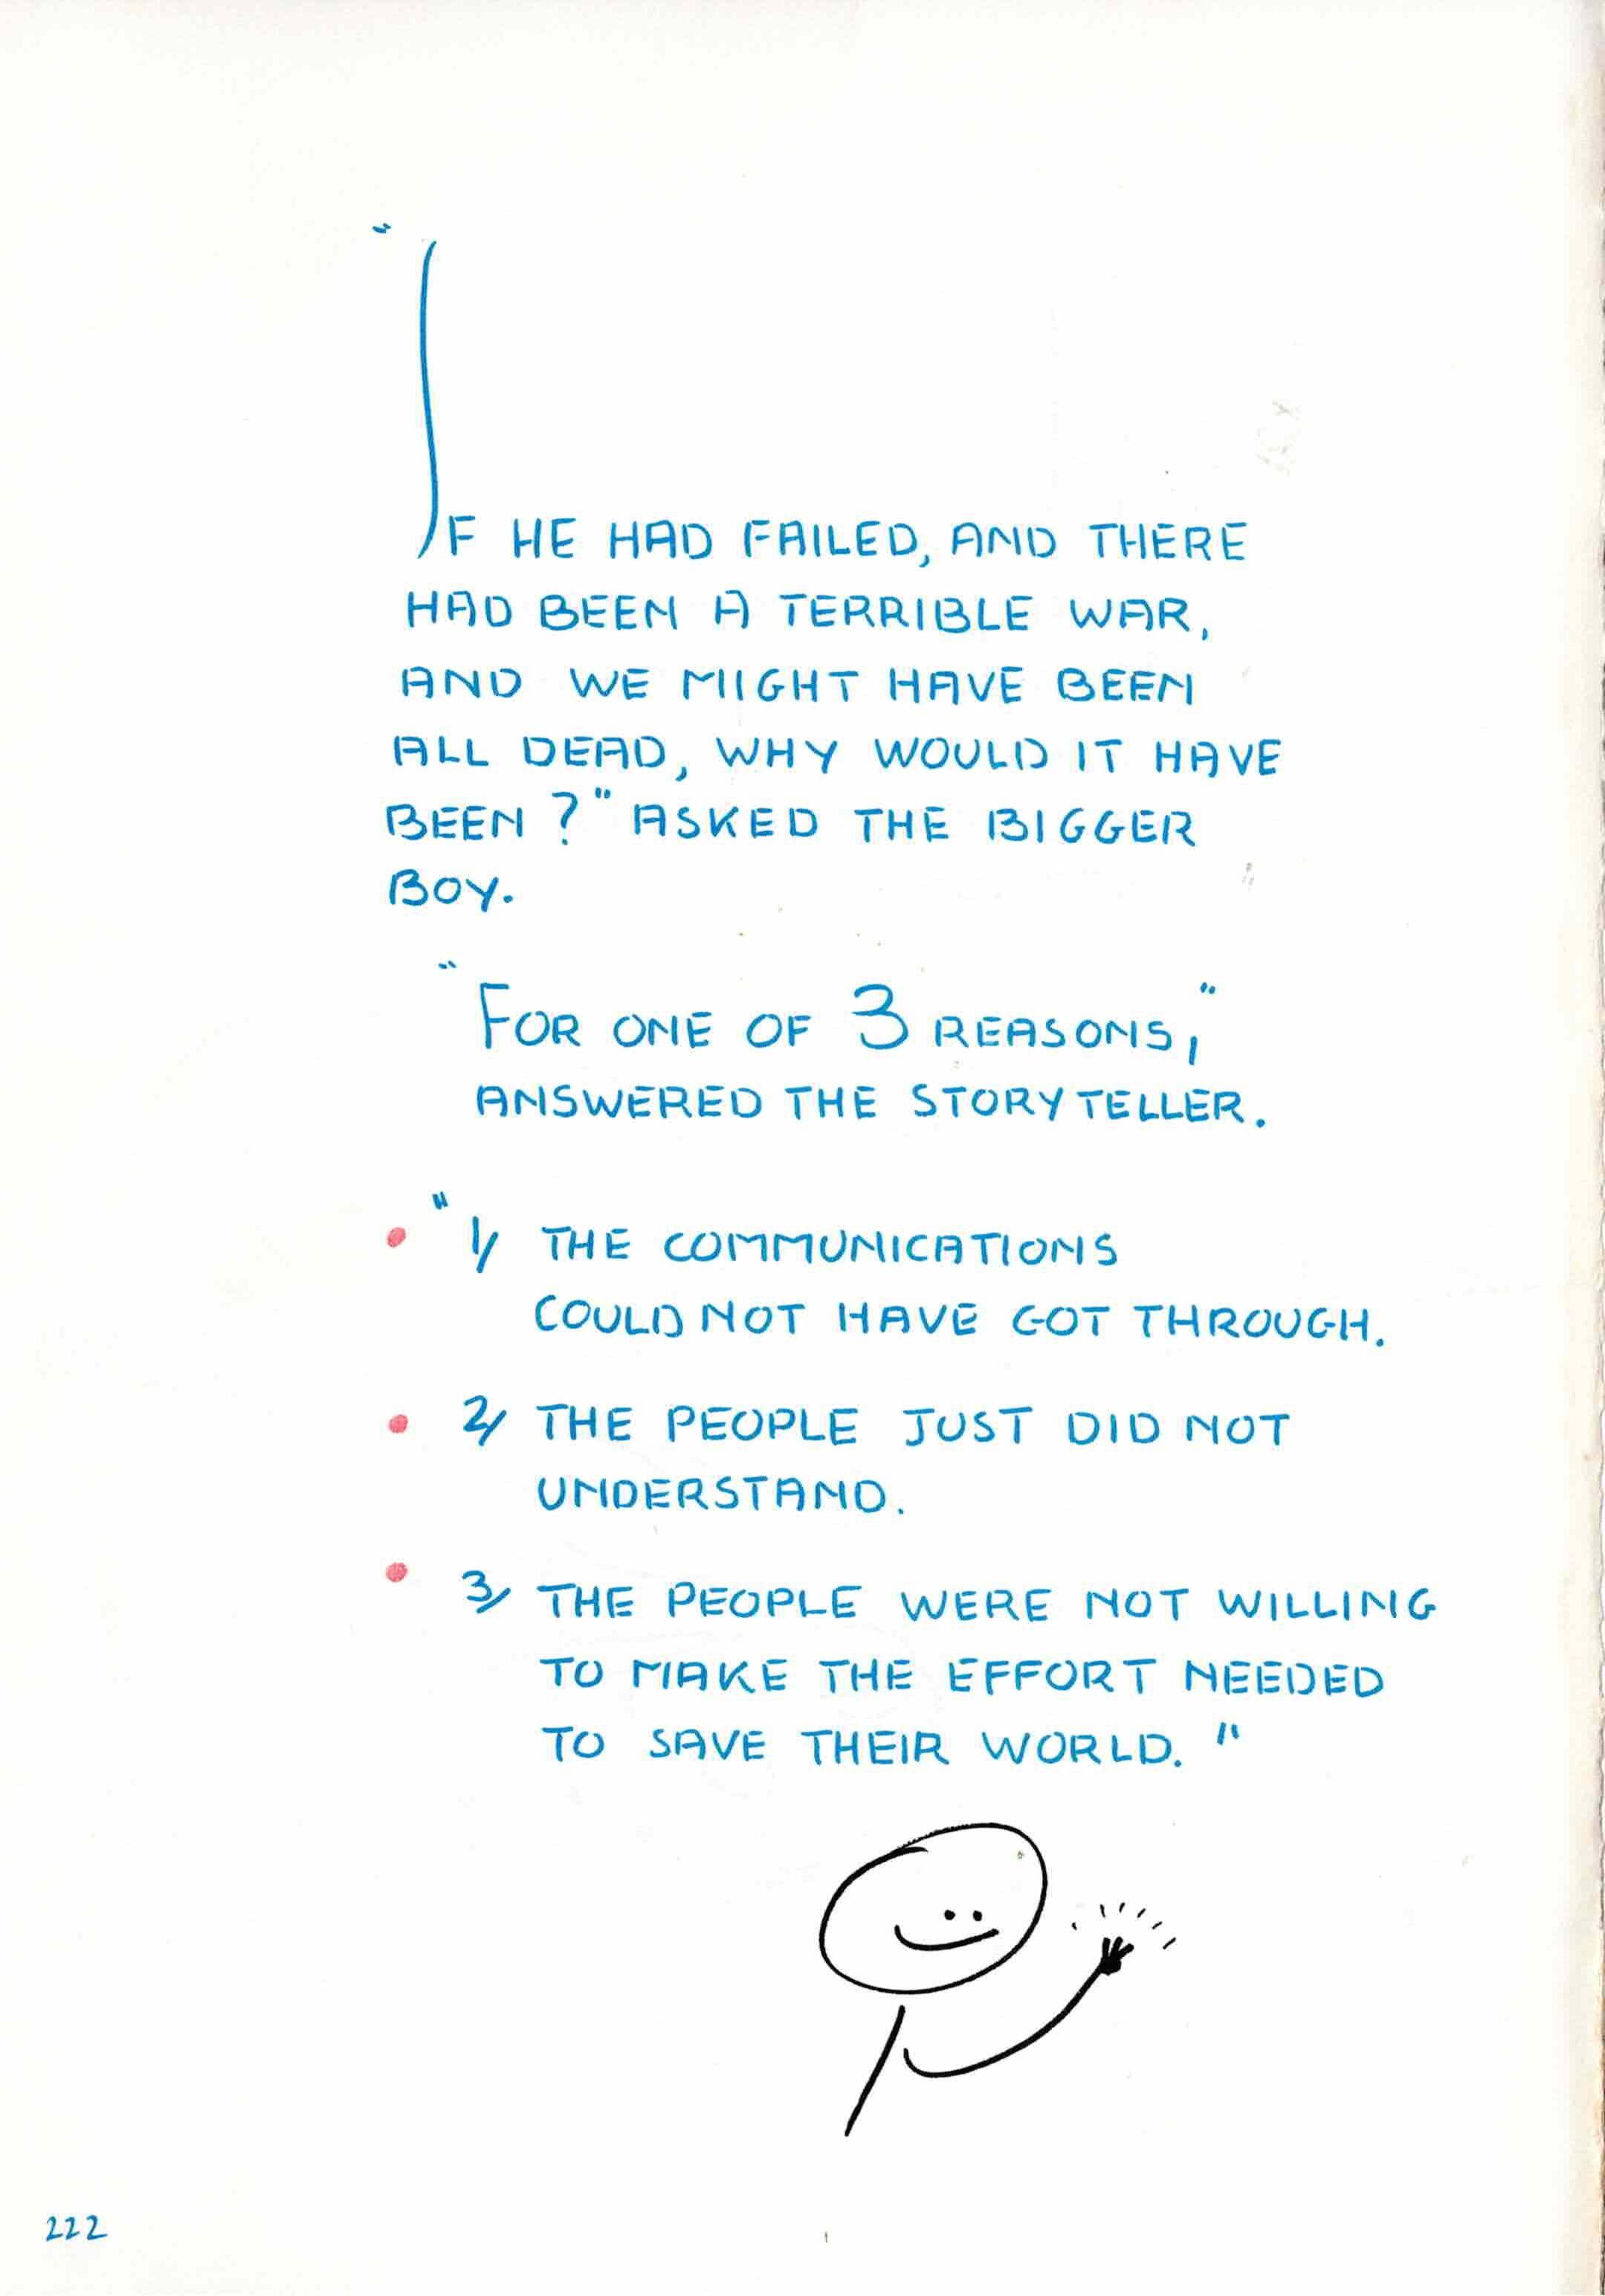 "IF HE HAD FAILED, AND THERE
HAD BEEN A TERRIBLE WAR,
AND WE MIGHT HAVE BEEN
ALL DEAD, WHY WOULD IT HAVE
BEEN?" ASKED THE BIGGER
BOY.
"FOR ONE OF 3 REASONS,"
ANSWERED THE STORYTELLER.
• "1/ THE COMMUNICATIONS
COULD NOT HAVE GOT THROUGH.
• 2/ THE PEOPLE JUST DID NOT
UNDERSTAND.
• 3/ THE PEOPLE WERE NOT WILLING
TO MAKE THE EFFORT NEEDED
TO SAVE THEIR WORLD."
222